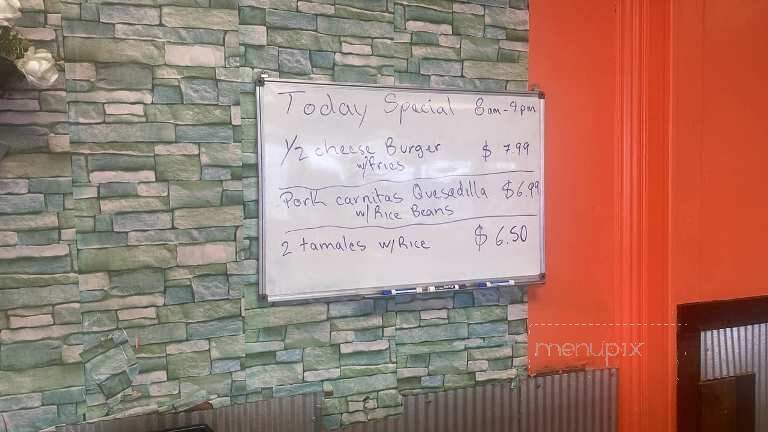 Today Special 8am-9pm
1/2 cheese Burger $ 7.99
w/fries
Pork carnitas Quesadilla $6.99
w/Rice Beans
2 tamales w/Rice $ 6.50
menupix